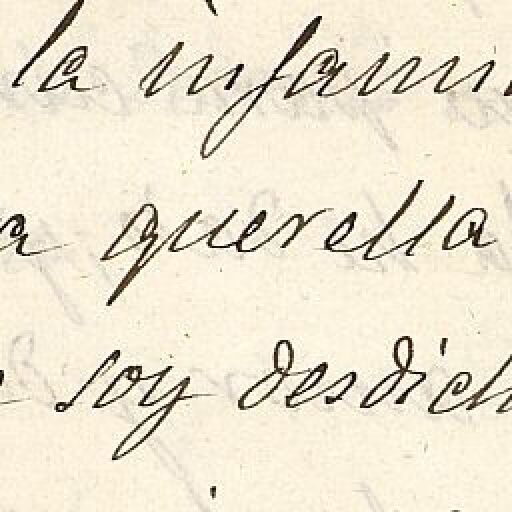 la infami
a querella
soy desdich